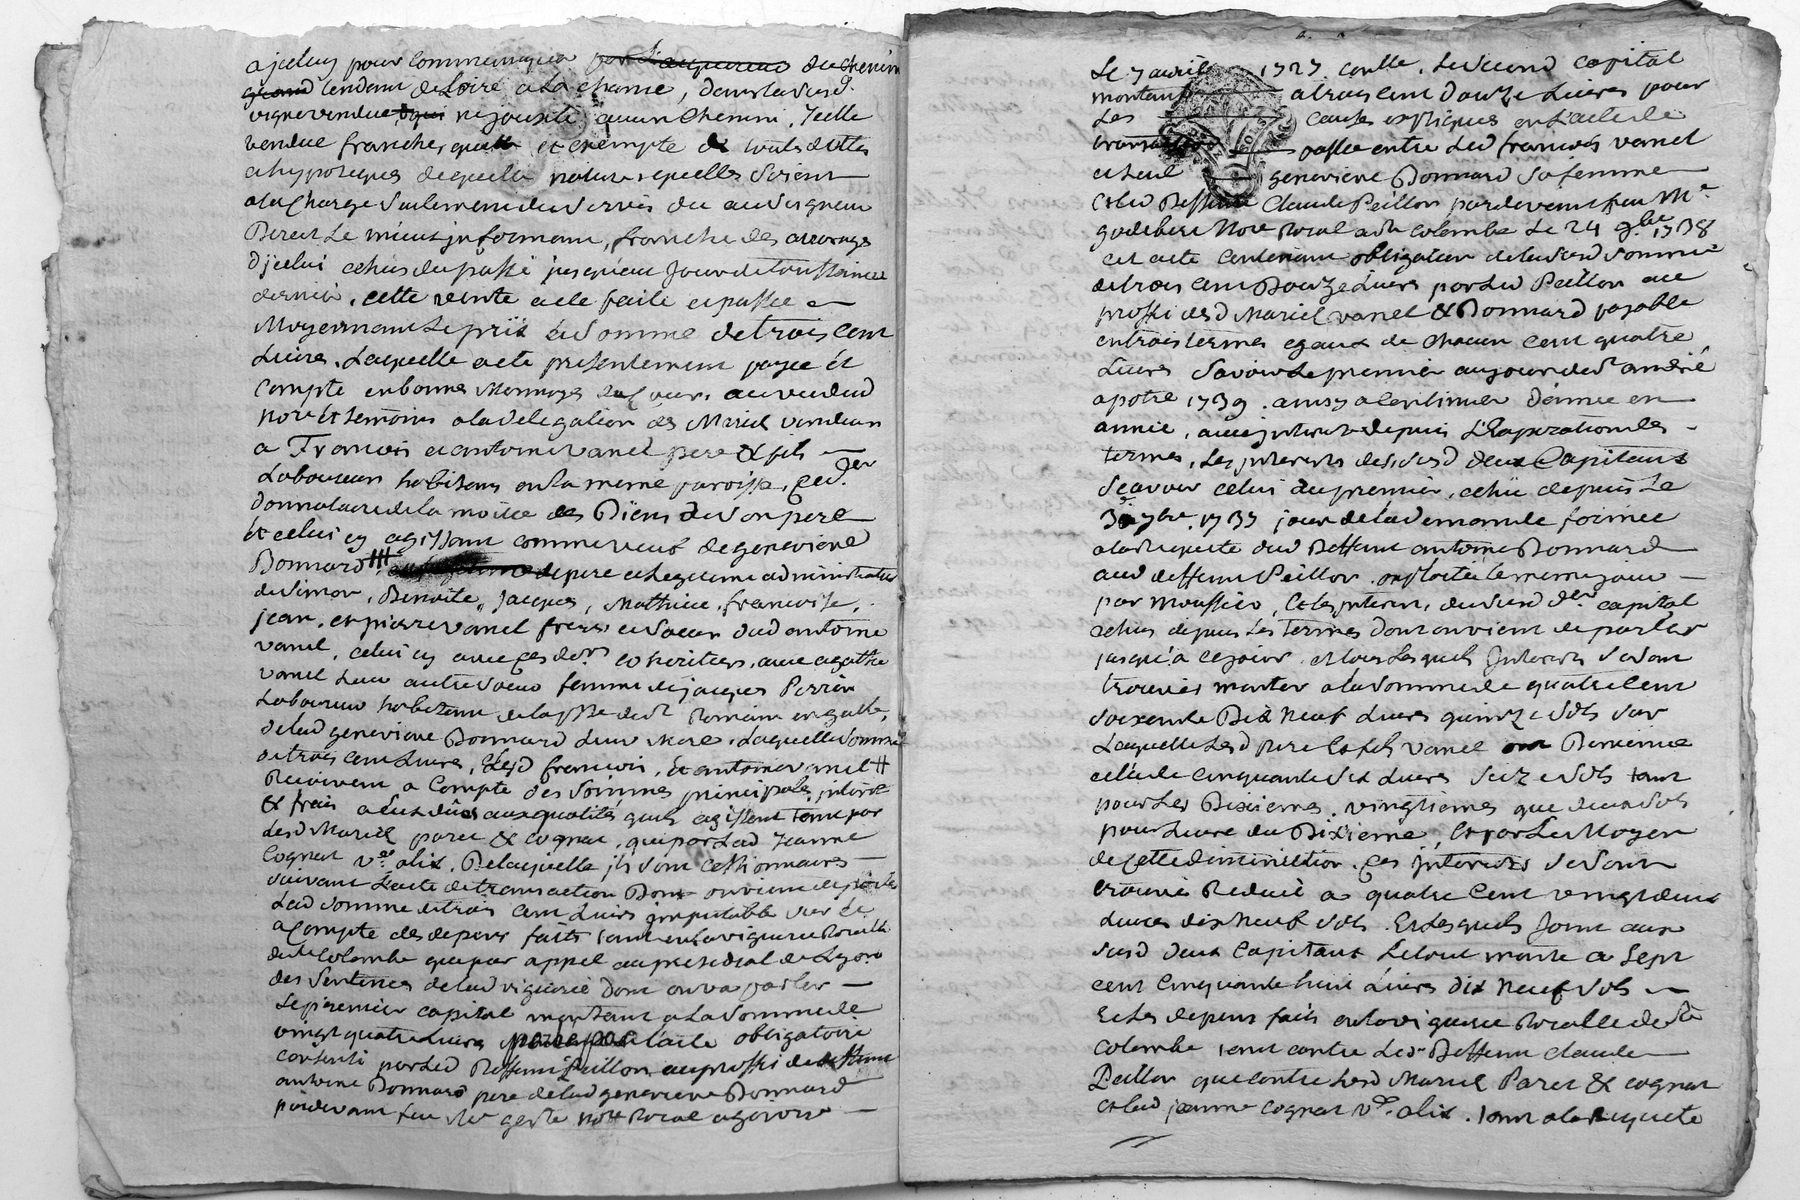 a jceluy pour Communiquer par L'acquereur du chemin
grand tendant de Loire a La chance, dans la susd.
vigne vendue qui ne jouxte aucun Chemin, Jcelle
vendue franche, quitte et exempte de touts dettes
et hypoteques de quelle nature, quelles soient
a la Charge seulement du servis du au seigneur
Direct Le mieux jnformant, franche des arrerages
d'jcelui echus du passé jusqu'au Jour de toussaints
dernier, cette vente a été faite et passée
Moyennant Le prix et somme de trois Cent
Livres, Laquelle a eté presentement payée et
Compté en bonnes Monnoyes au vu dud
Nore et temoins a la delegation des Mariés vendeurs
a Francois et antoine vanel pere & fils
Laboureurs habitans en la meme paroisse, Ced. der
donnataire de la moitié des Biens de son pere
et celui cy agissant comme veuf de genevieve
Bonnard ### de pere et legitime administrateur
de simon, Benoite, Jacques, Mathieu, francoise,
jean, et pierre vanel freres et soeurs dud antoine
vanel, celui cy avec ces ders coheritiers, avec agathe
vanel Leur autre soeur femme de jacques Perrin
Laboureur habitant de la psse de st Romain en galle,
de lad genevieve Bonnard Leur Mere, Laquelle somme
de trois cent Livres, Lesd francois, et antoine vanel #
Recoivent a Compte des sommes principales, jnterets
& frais a eux düs aux qualités quils agissent tant par
Lesd Mariés paret & Cognat, que par Lad Jeanne
Cognat vve alix, De laquelle jls sont cessionnaires
suivant L'acte de transaction Dont on vient de parler
Lad somme de trois Cent Livres jmputable sur et
a Compte des depens faits tant en la viguerie Royalle
de ste Colombe que par appel au presidial de Lyon
des sentences de lad viguerie dont on va parler
Le premier capital montant a La somme de
vingt quatre Livres L'acte obligatoire
Consenti par Led Deffunt Peillon au proffit de deffunt
antoine Bonnard pere de lad genevieve Bonnard
pardevant feu Me Nore Royal
Le 7 avril 1727 . Le second Capital
montant a trois cent Douze Livres pour
Les Causes expliquées en L'acte de
transaction passé entre Led francois vanel
et Genevieve Bonnard sa femme
et led Deffunt Claude Peillon pardevant feu Me
Nore Royal a ste colombe Le 24 9bre 1738
cet acte Contenant obligation de la susd somme
de trois cent Douze Livres par Led Peillon au
proffit desd Mariés vanel & Bonnard payable
en trois termes egaux de Chacun Cent quatre
Livres Savoir Le premier au jour de st andré
apotre 1739. ainsy a Continuer d'année en
année, avec jnterets depuis L'Expiration des
termes, Les jnterets des susd deux Capitaux
Scavoir celui du premier, echu depuis Le
30 7bre 1737 jour de la demande formée
a la Requete dud Deffunt antoine Bonnard
aud deffunt Peillon, exploitée le meme jour
par Moussier, Et les jnterets du susd der capital
echus depuis Les termes dont on vient de parler
jusqu'a ce jour, et tous Lesquels Jnterets se sont
trouvés monter a la somme de quatre Cent
soixante Dix Neuf Livres quinze sols sur
Laquelle Lesd pere Et fils vanel ont Remis
celle de Cinquante six Livres seize sols tant
pour Les Dixiemes, vingtiemes que deux sols
pour Livre du Dixieme, Et par Le Moyen
de cette diminution, Ces jnterets se sont
trouvés Reduit a quatre Cent vingt deux
Livres dix Neuf sols. Et Lesquels Joint aux
susd deux Capitaux Le tout monte a Sept
cent Cinquante huit Livres dix Neuf sols
Et Les depens faits en la viguerie Royalle de ste
Colombe tant contre Led Deffunt Claude
Peillon que contre Lesd Mariés Paret & Cognat
et lad jeanne Cognat vve alix, tant a la Requete